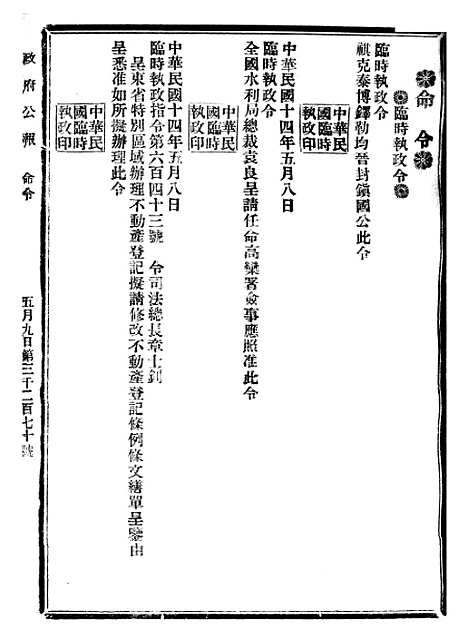 命令
臨時執政令
臨時執政令
祺克泰博鐸勒均晉封鎮國公此令
中華民
國臨時
執政印
中華民國十四年五月八日
臨時執政令
全國水利局總裁袁良呈請任命高欒署僉事應照准此令
中華民
國臨時
執政印
中華民國十四年五月八日
臨時執政指令第六百四十三號　令司法總長章士釗
呈東省特別區域辦理不動產登記擬請修改不動產登記條例條文繕單呈鑒由
呈悉准如所擬辦理此令
中華民
國臨時
執政印
政府公報　命令　五月九日第三千二百七十號